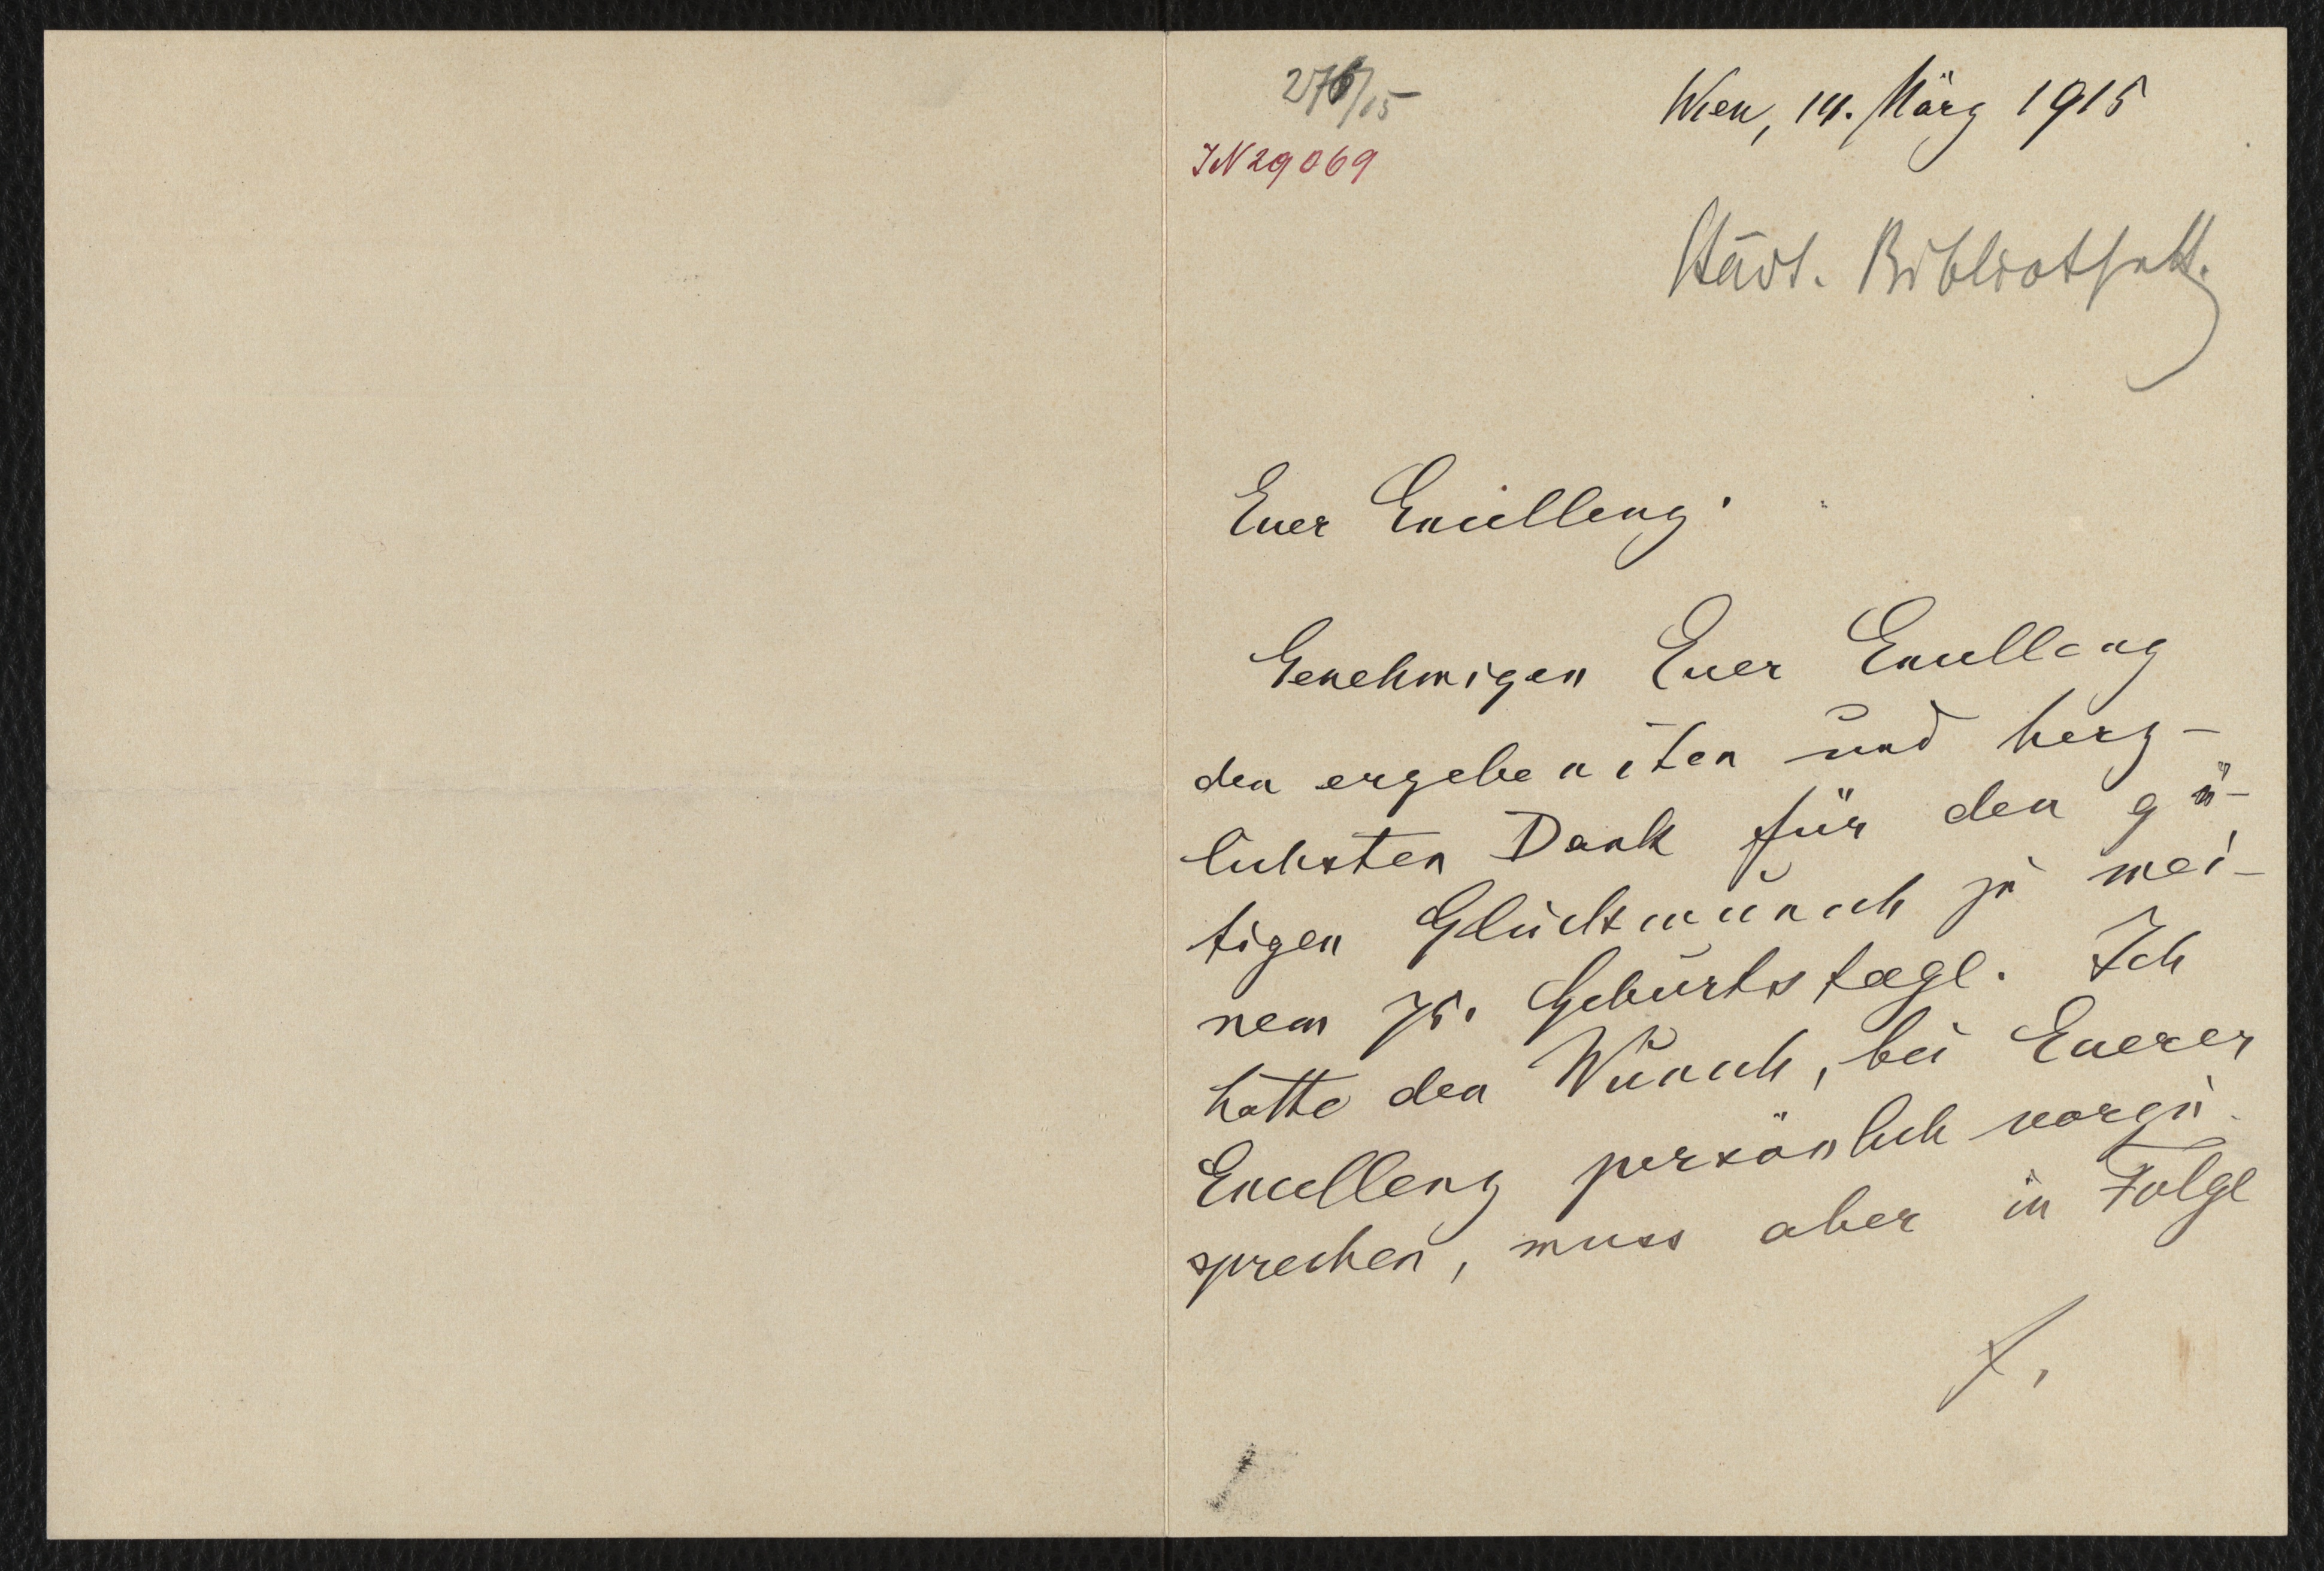 276/15
Wien, 14. März 1915
IN 29069
Städt. Bibliothek.
Euer Excellenz!
Genehmigen Euer Excellenz
den ergebensten und herz-
lichsten Dank für den gü-
tigen Glückwunsch zu mei-
nem 75. Geburtstage. Ich
hatte den Wunsch, bei Euerer
Excellenz persönlich vorzu-
sprechen, muss aber in Folge